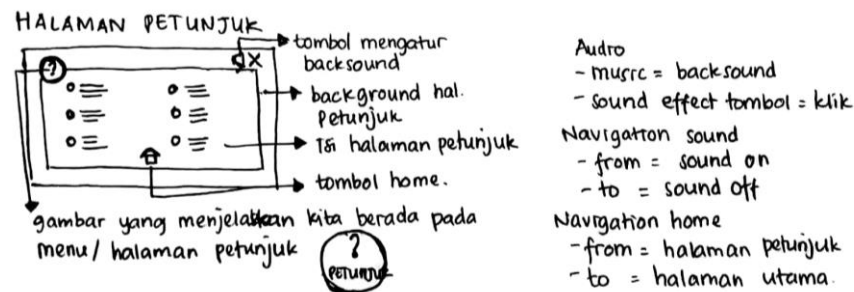 HALAMAN PETUNJUK
tombol mengatur
backsound
?
background hal.
petunjuk
Isi halaman petunjuk
tombol home.
gambar yang menjelaskan kita berada pada
menu/ halaman petunjuk
?
PETUNJUK
Audio
- music = backsound
- sound effect tombol = klik
Navigation sound
- from = sound on
- to = sound off
Navigation home
- from = halaman petunjuk
- to = halaman utama.